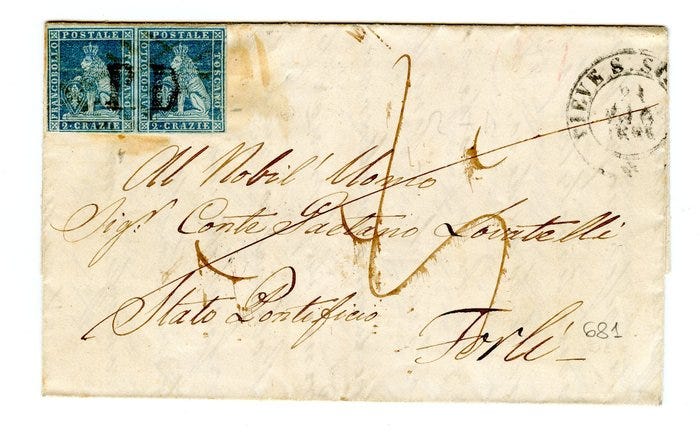 FRANCOBOLLO POSTALE TOSCANO 2 CRAZIE
FRANCOBOLLO POSTALE TOSCANO 2 CRAZIE
P D
PIEVE S. S
21
Al Nobil' Uomo
Sigr Conte Gaetano Lovatelli
Stato Pontificio
Forlì
681